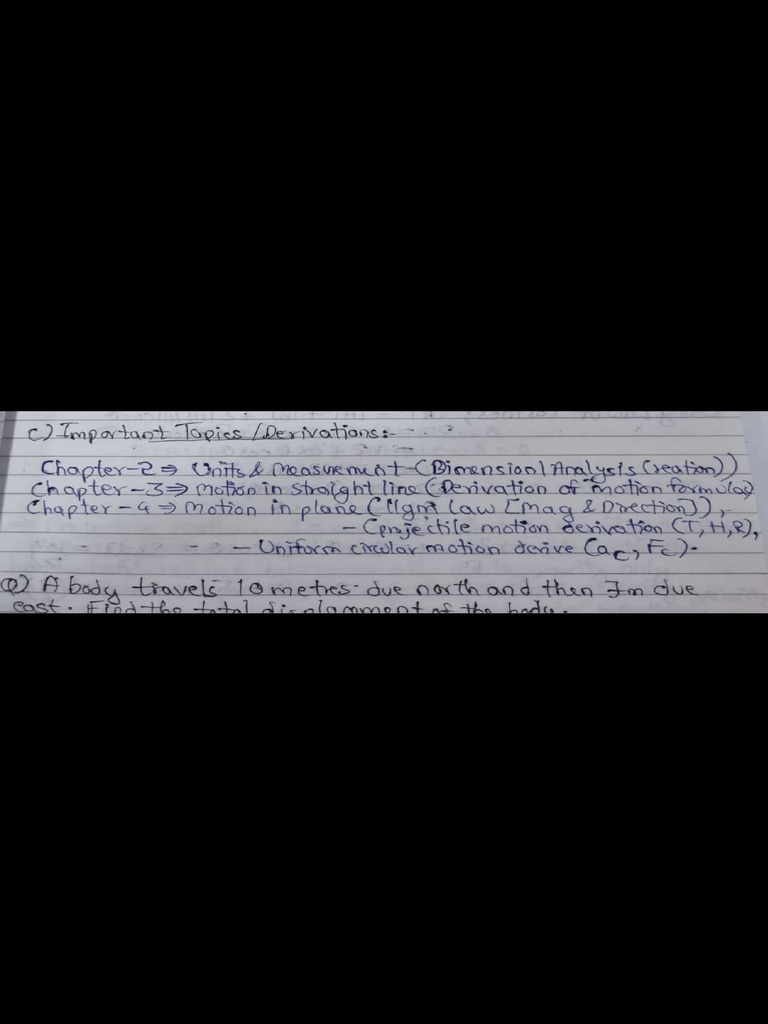 C) Important Topics / Derivations:-
Chapter-2 ⇒ Units & Measurement (Dimensional Analysis (reation))
Chapter-3 ⇒ Motion in straight line (Derivation of motion formula)
Chapter-4 ⇒ Motion in plane (||gm law [Mag & Direction]),
- (projectile motion derivation (T, H, R),
- Uniform circular motion derive (ac, Fc).
Q) A body travels 10 metres due north and then 7m due
east. Find the total displacement of the body.